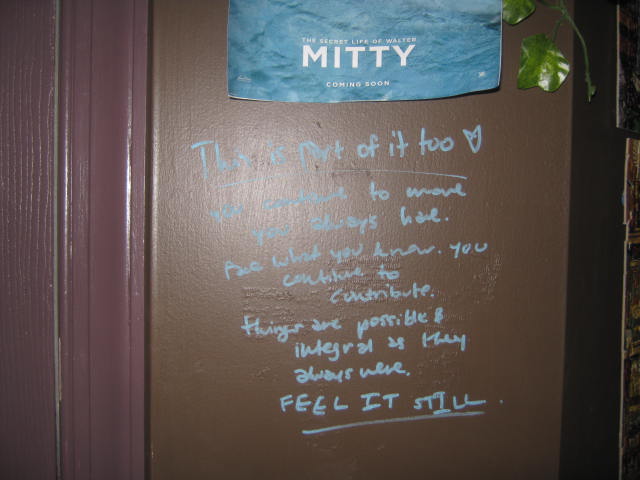 THE SECRET LIFE OF WALTER
MITTY
COMING SOON
This is part of it too
you continue to move
you always have.
what you know. you
continue to
contribute.
things are possible &
integral as they
always were.
FEEL IT STILL.